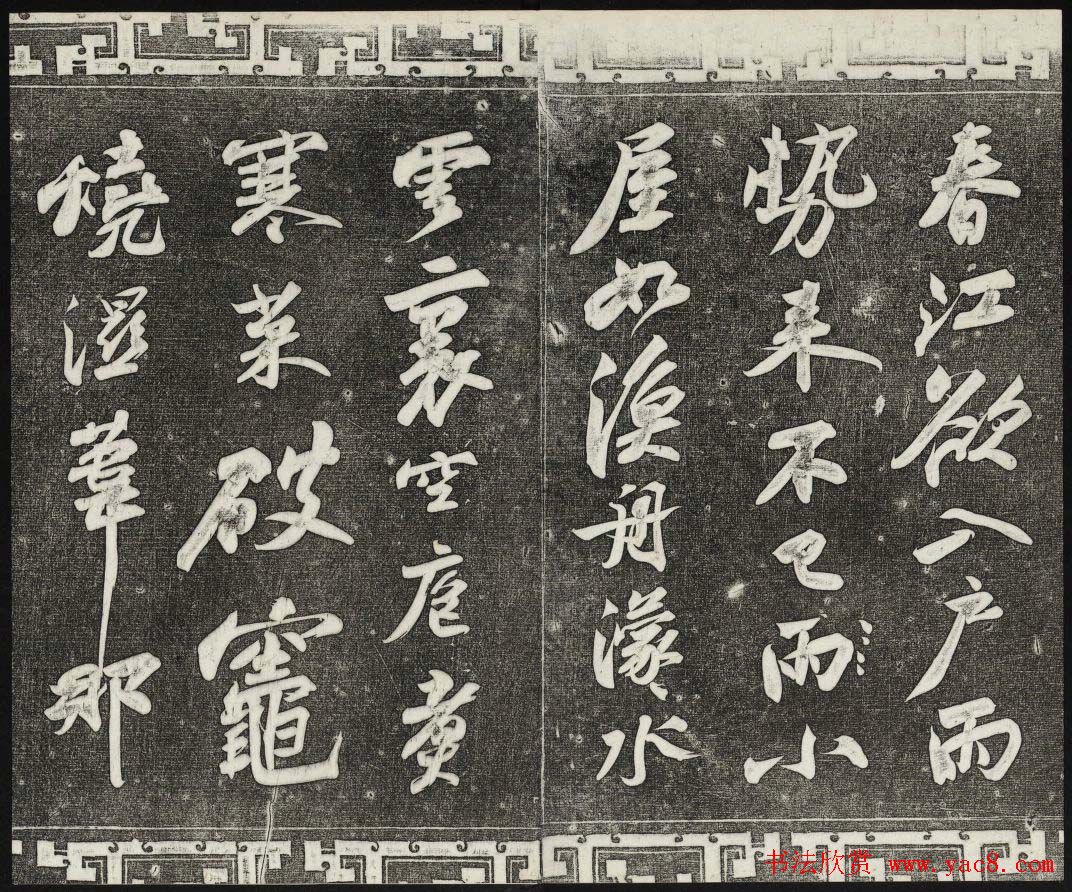 春江欲入戶雨
勢来不已雨小
屋如漁舟濛々水
雲裏空庖煮
寒菜破竈
燒濕葦那
书法欣赏 www.yac8.com